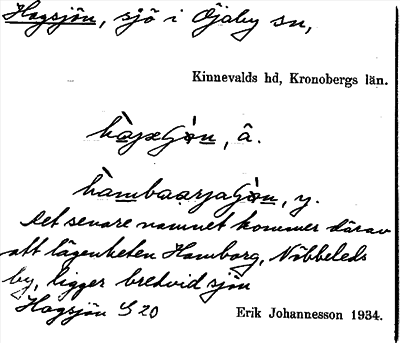 Hagsjön, sjö i Öjaby sn,
Kinnevalds hd, Kronobergs län.
, å.
, y.
Det senare namnet kommer därav
att lägenheten Hamborg, Nöbbeleds
by, ligger bredvid sjön
Hagsjön S 20
Erik Johannesson 1934.